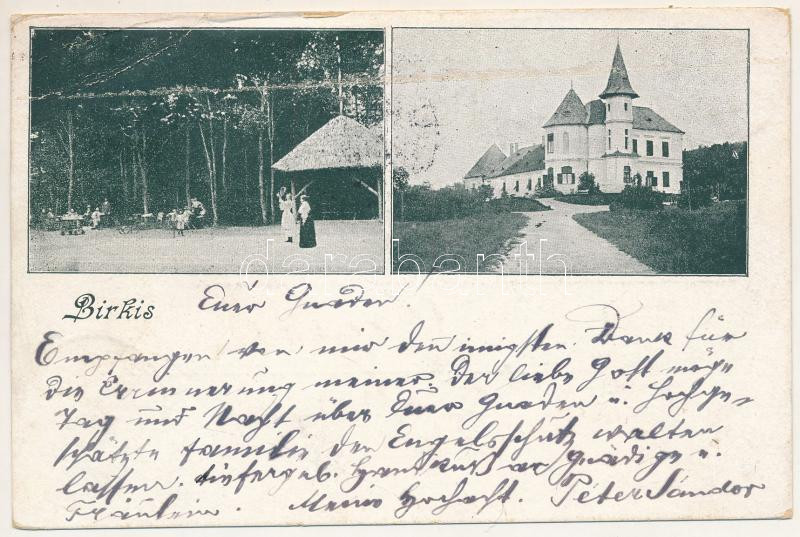 Birkis
Euer Gnaden.
Empfangen von mir den inigsten Dank für
die Erinnerung meiner. Der liebe Gott möge
Tag und Nacht über Euer Gnaden u. Hochge-
schätzte Familie den Engelsschutz walten
lassen. tiefergeb. Handkuß an Gnädige u.
Fräulein. Meine Hochacht. Péter Sándor
darabanth